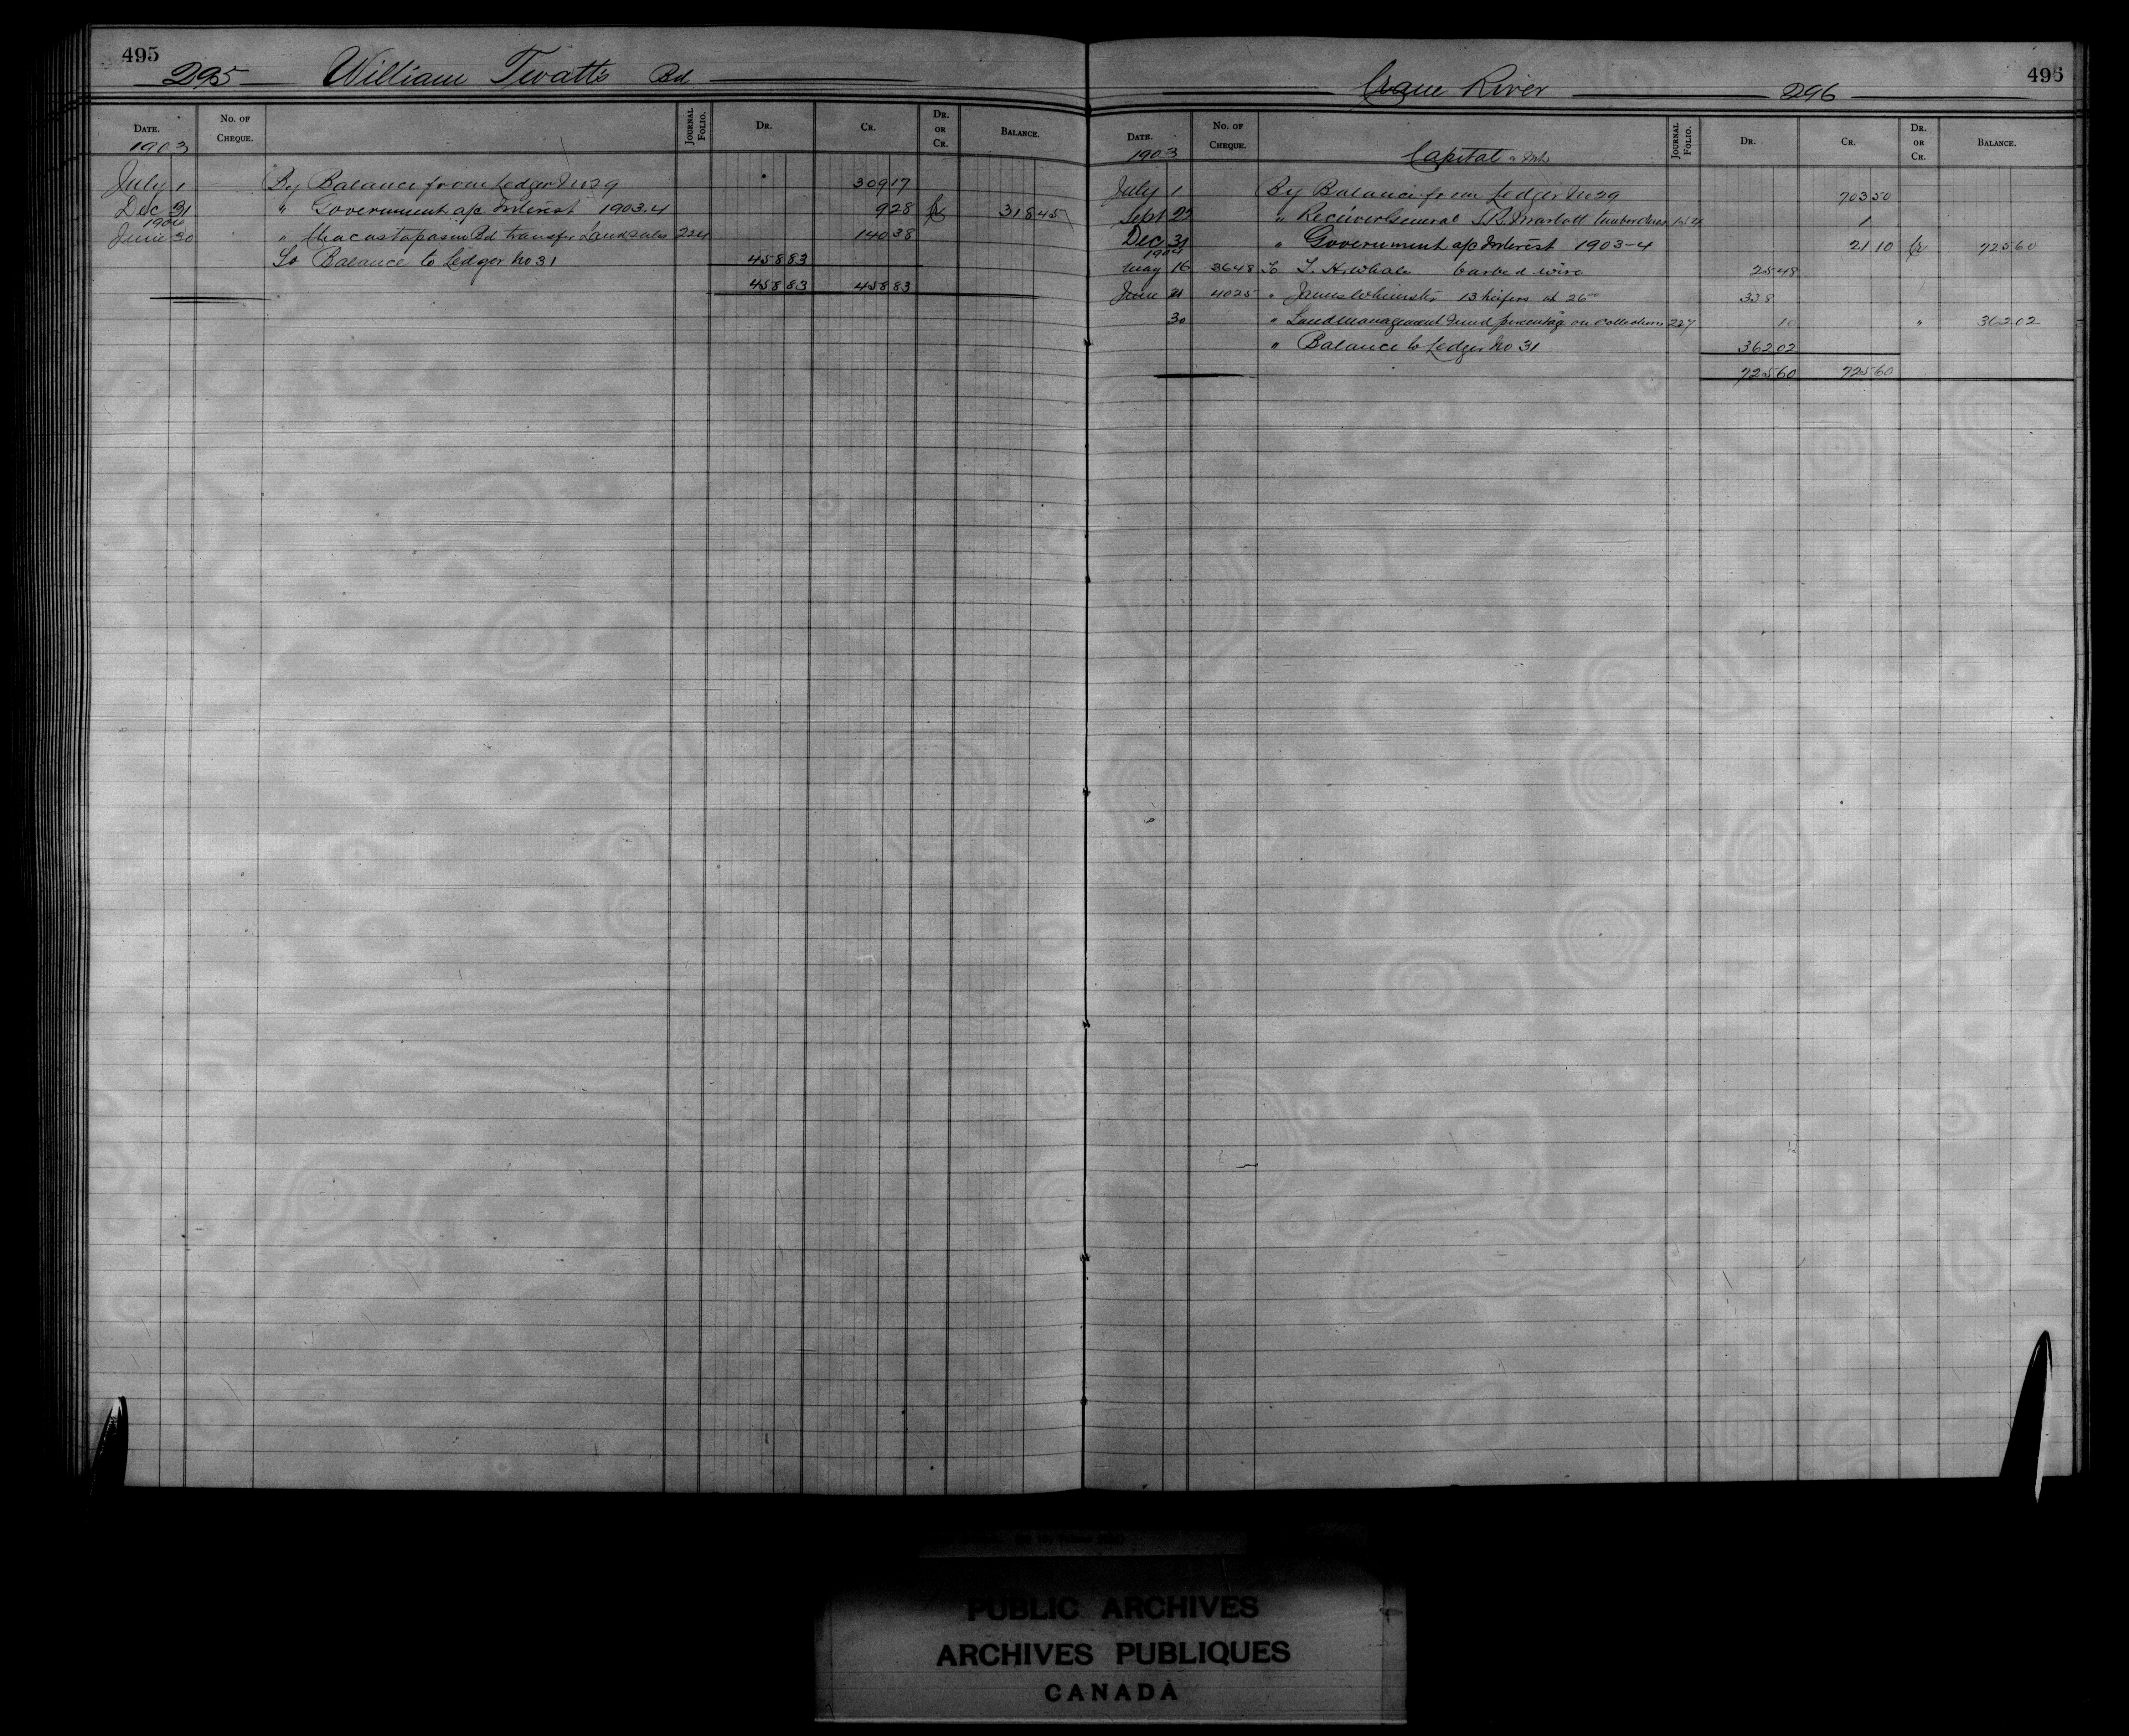 495
295 William Twatts Bd
DATE. No. OF CHEQUE. JOURNAL FOLIO. DR. CR. DR. OR CR. BALANCE.
1903
July 1 By Balance from Ledger No 29 309 17
Dec 31 " Government a/c Interest 1903.4 9 28 Cr 318 45
1904
June 30 " Bd transfer Land sales 224 140 38
To Balance to Ledger No 31 458 83
458 83 458 83
495
Crane River 296
DATE. No. OF CHEQUE. JOURNAL FOLIO. DR. CR. DR. OR CR. BALANCE.
1903 Capital
July 1 By Balance from Ledger No 29 703 50
Sept 22 " Receiver General 1
Dec 31 " Government a/c Interest 1903-4 21 10 Cr 725 60
1904
May 16 3648 To barbed wire 25 48
June 21 4025 " James 13 heifers at 26 00 338
30 " Land Management Fund percentage on collections 227 10 " 362 02
" Balance to Ledger No 31 362 02
725 60 725 60
PUBLIC ARCHIVES
ARCHIVES PUBLIQUES
CANADA